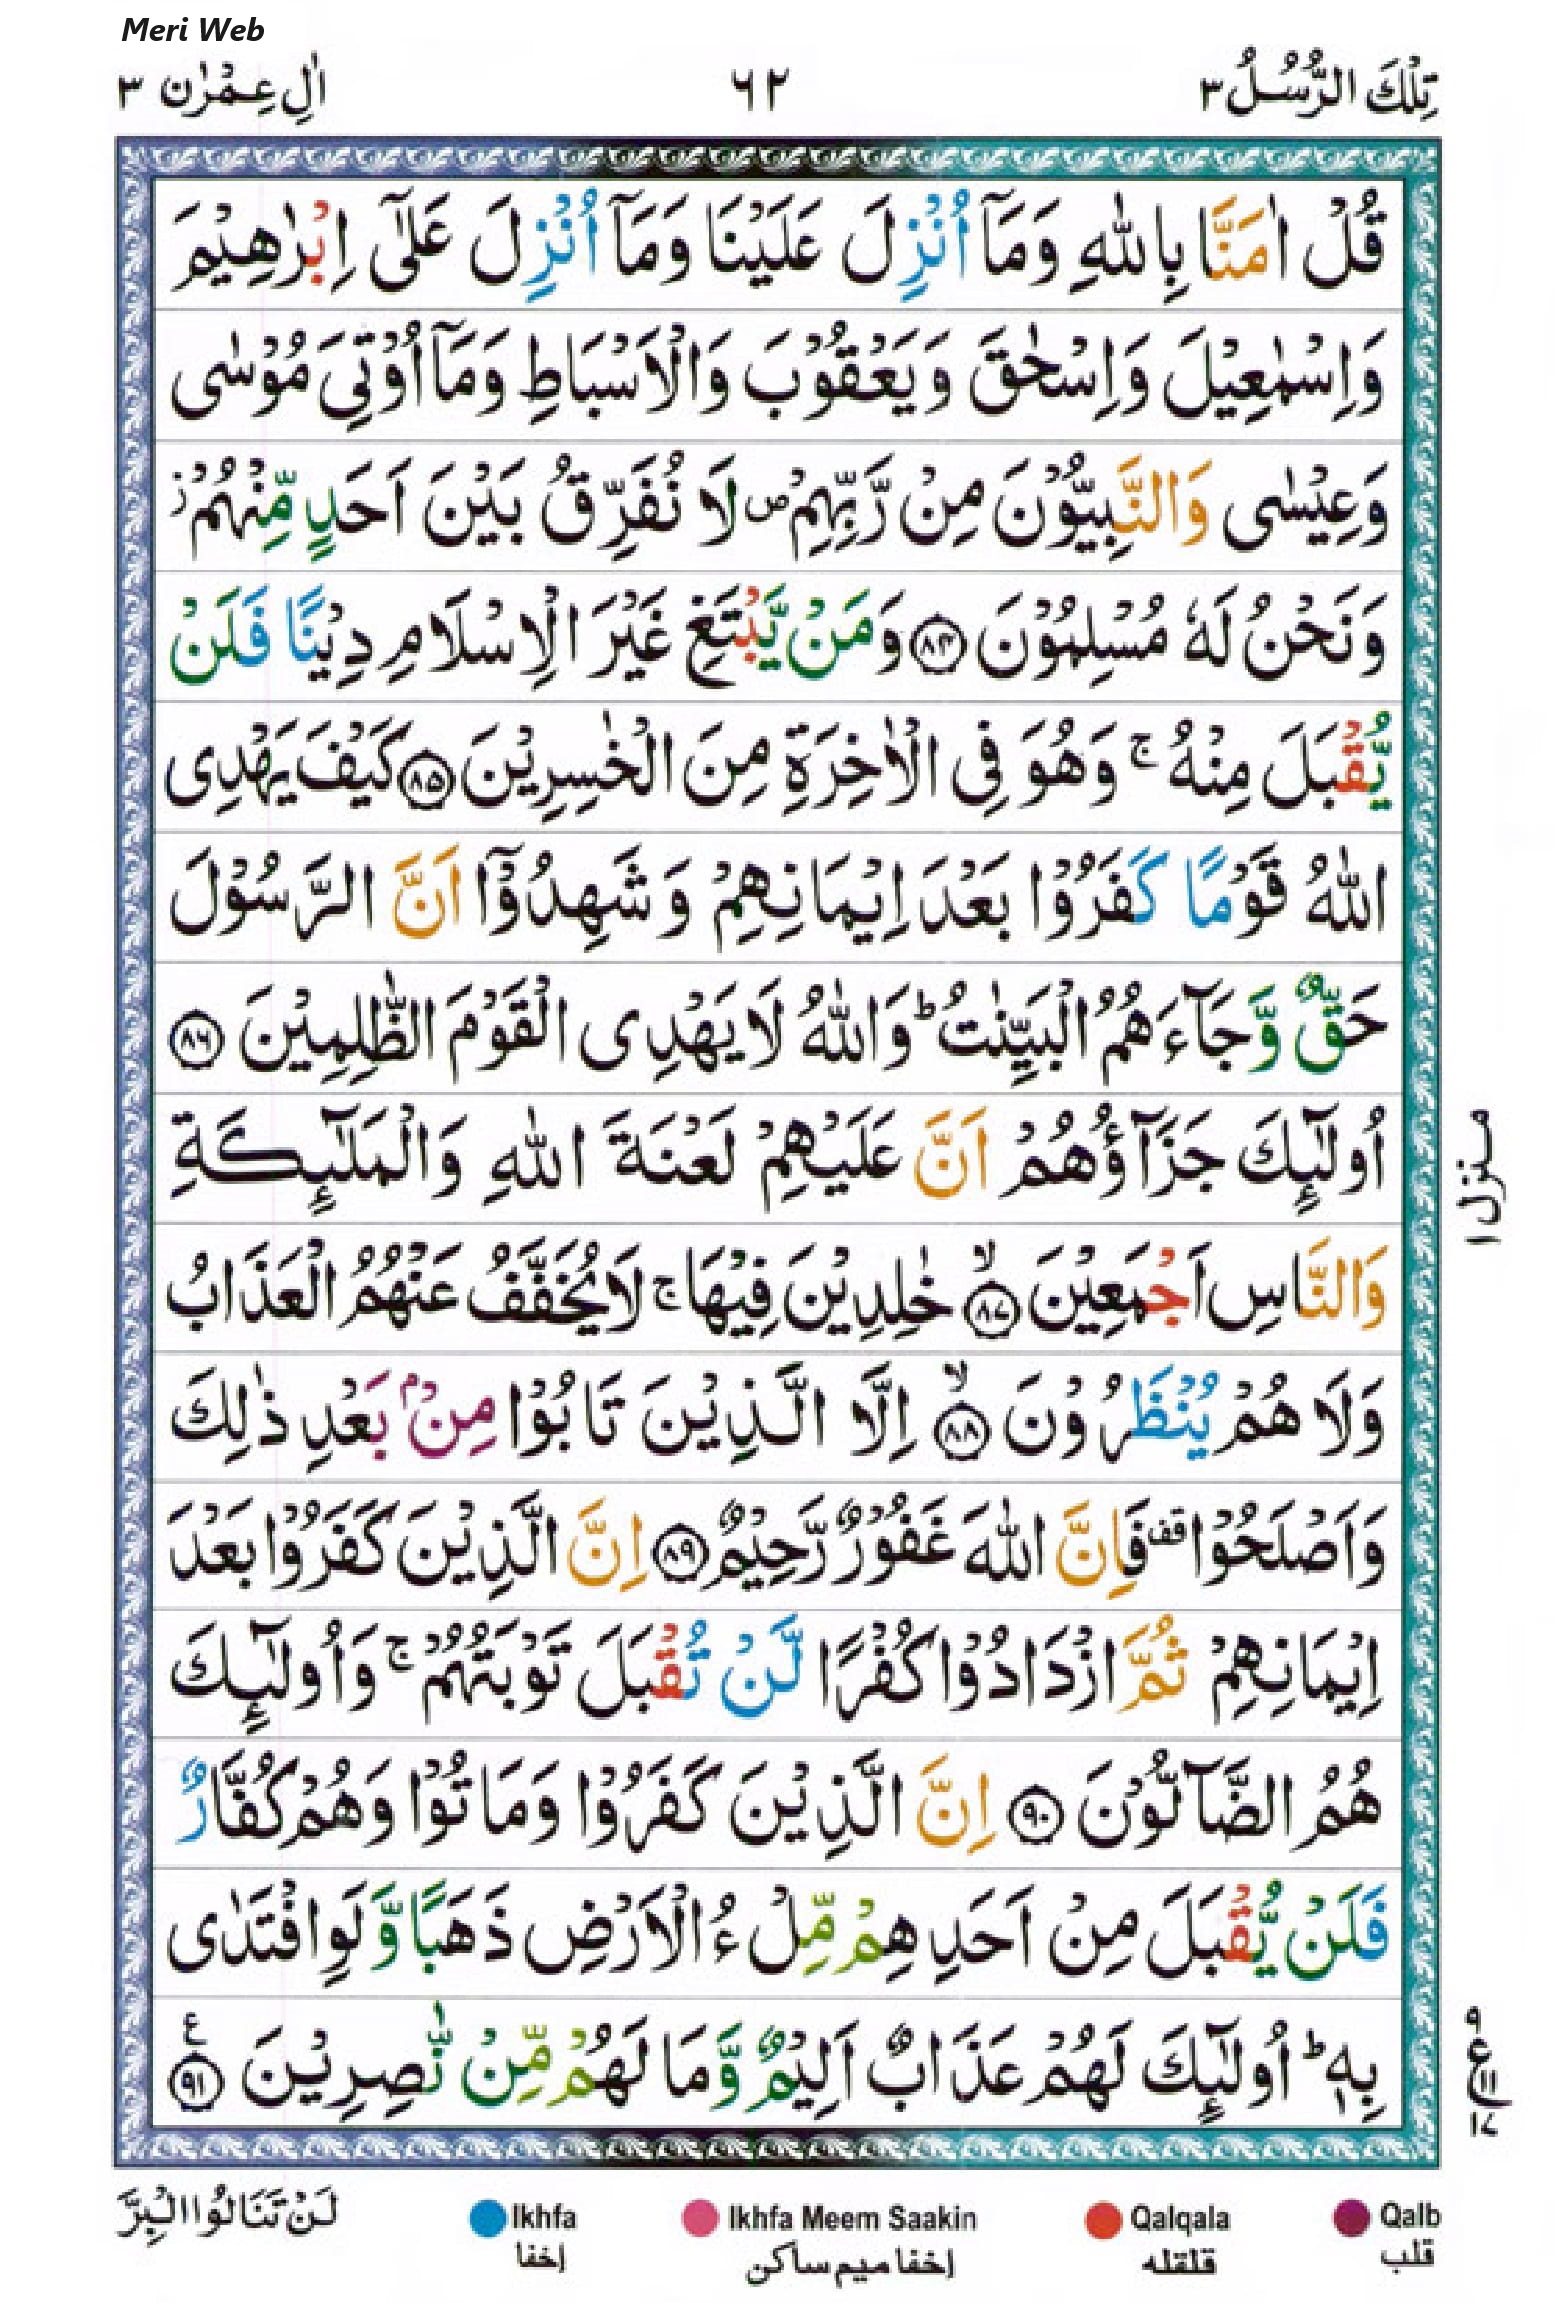 Meri Web
تِلْكَ الرُّسُلُ ٣
٦٢
اٰلِ عِمْرٰن ٣
قُلْ اٰمَنَّا بِاللّٰهِ وَمَاۤ اُنْزِلَ عَلَيْنَا وَمَاۤ اُنْزِلَ عَلٰۤى اِبْرٰهِيْمَ
وَاِسْمٰعِيْلَ وَاِسْحٰقَ وَيَعْقُوْبَ وَالْاَسْبَاطِ وَمَاۤ اُوْتِيَ مُوْسٰى
وَعِيْسٰى وَالنَّبِيُّوْنَ مِنْ رَّبِّهِمْ ص لَا نُفَرِّقُ بَيْنَ اَحَدٍ مِّنْهُمْ ز
وَنَحْنُ لَهٗ مُسْلِمُوْنَ ۝٨٤ وَمَنْ يَّبْتَغِ غَيْرَ الْاِسْلَامِ دِيْنًا فَلَنْ
يُّقْبَلَ مِنْهُ ۚ وَهُوَ فِى الْاٰخِرَةِ مِنَ الْخٰسِرِيْنَ ۝٨٥ كَيْفَ يَهْدِى
اللّٰهُ قَوْمًا كَفَرُوْا بَعْدَ اِيْمَانِهِمْ وَشَهِدُوْۤا اَنَّ الرَّسُوْلَ
حَقٌّ وَّجَآءَهُمُ الْبَيِّنٰتُ ؕ وَاللّٰهُ لَا يَهْدِى الْقَوْمَ الظّٰلِمِيْنَ ۝٨٦
اُولٰٓئِكَ جَزَآؤُهُمْ اَنَّ عَلَيْهِمْ لَعْنَةَ اللّٰهِ وَالْمَلٰٓئِكَةِ
وَالنَّاسِ اَجْمَعِيْنَ ۙ۝٨٧ خٰلِدِيْنَ فِيْهَا ۚ لَا يُخَفَّفُ عَنْهُمُ الْعَذَابُ
وَلَا هُمْ يُنْظَرُوْنَ ۙ۝٨٨ اِلَّا الَّذِيْنَ تَابُوْا مِنْۢ بَعْدِ ذٰلِكَ
وَاَصْلَحُوْا قف فَاِنَّ اللّٰهَ غَفُوْرٌ رَّحِيْمٌ ۝٨٩ اِنَّ الَّذِيْنَ كَفَرُوْا بَعْدَ
اِيْمَانِهِمْ ثُمَّ ازْدَادُوْا كُفْرًا لَّنْ تُقْبَلَ تَوْبَتُهُمْ ۚ وَاُولٰٓئِكَ
هُمُ الضَّآلُّوْنَ ۝٩٠ اِنَّ الَّذِيْنَ كَفَرُوْا وَمَاتُوْا وَهُمْ كُفَّارٌ
فَلَنْ يُّقْبَلَ مِنْ اَحَدِهِمْ مِّلْءُ الْاَرْضِ ذَهَبًا وَّلَوِ افْتَدٰى
بِهٖ ؕ اُولٰٓئِكَ لَهُمْ عَذَابٌ اَلِيْمٌ وَّمَا لَهُمْ مِّنْ نّٰصِرِيْنَ ۝٩١ ع
منزل ١
٩ ع ١١ ١٧
لَنْ تَنَالُوا الْبِرَّ
Ikhfa
اخفا
Ikhfa Meem Saakin
اخفا ميم ساكن
Qalqala
قلقله
Qalb
قلب